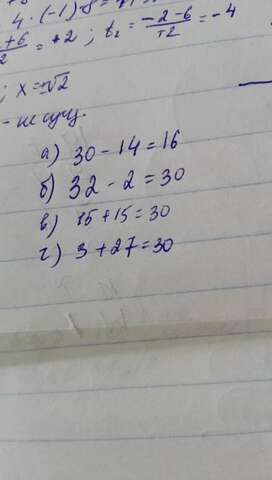 4·(-1)·8=
+6/2 = +2 ; t₂ = -2-6/+2 = -4
; x=±√2
- не сущ.
а) 30-14=16
б) 32-2=30
в) 15+15=30
г) 3+27=30